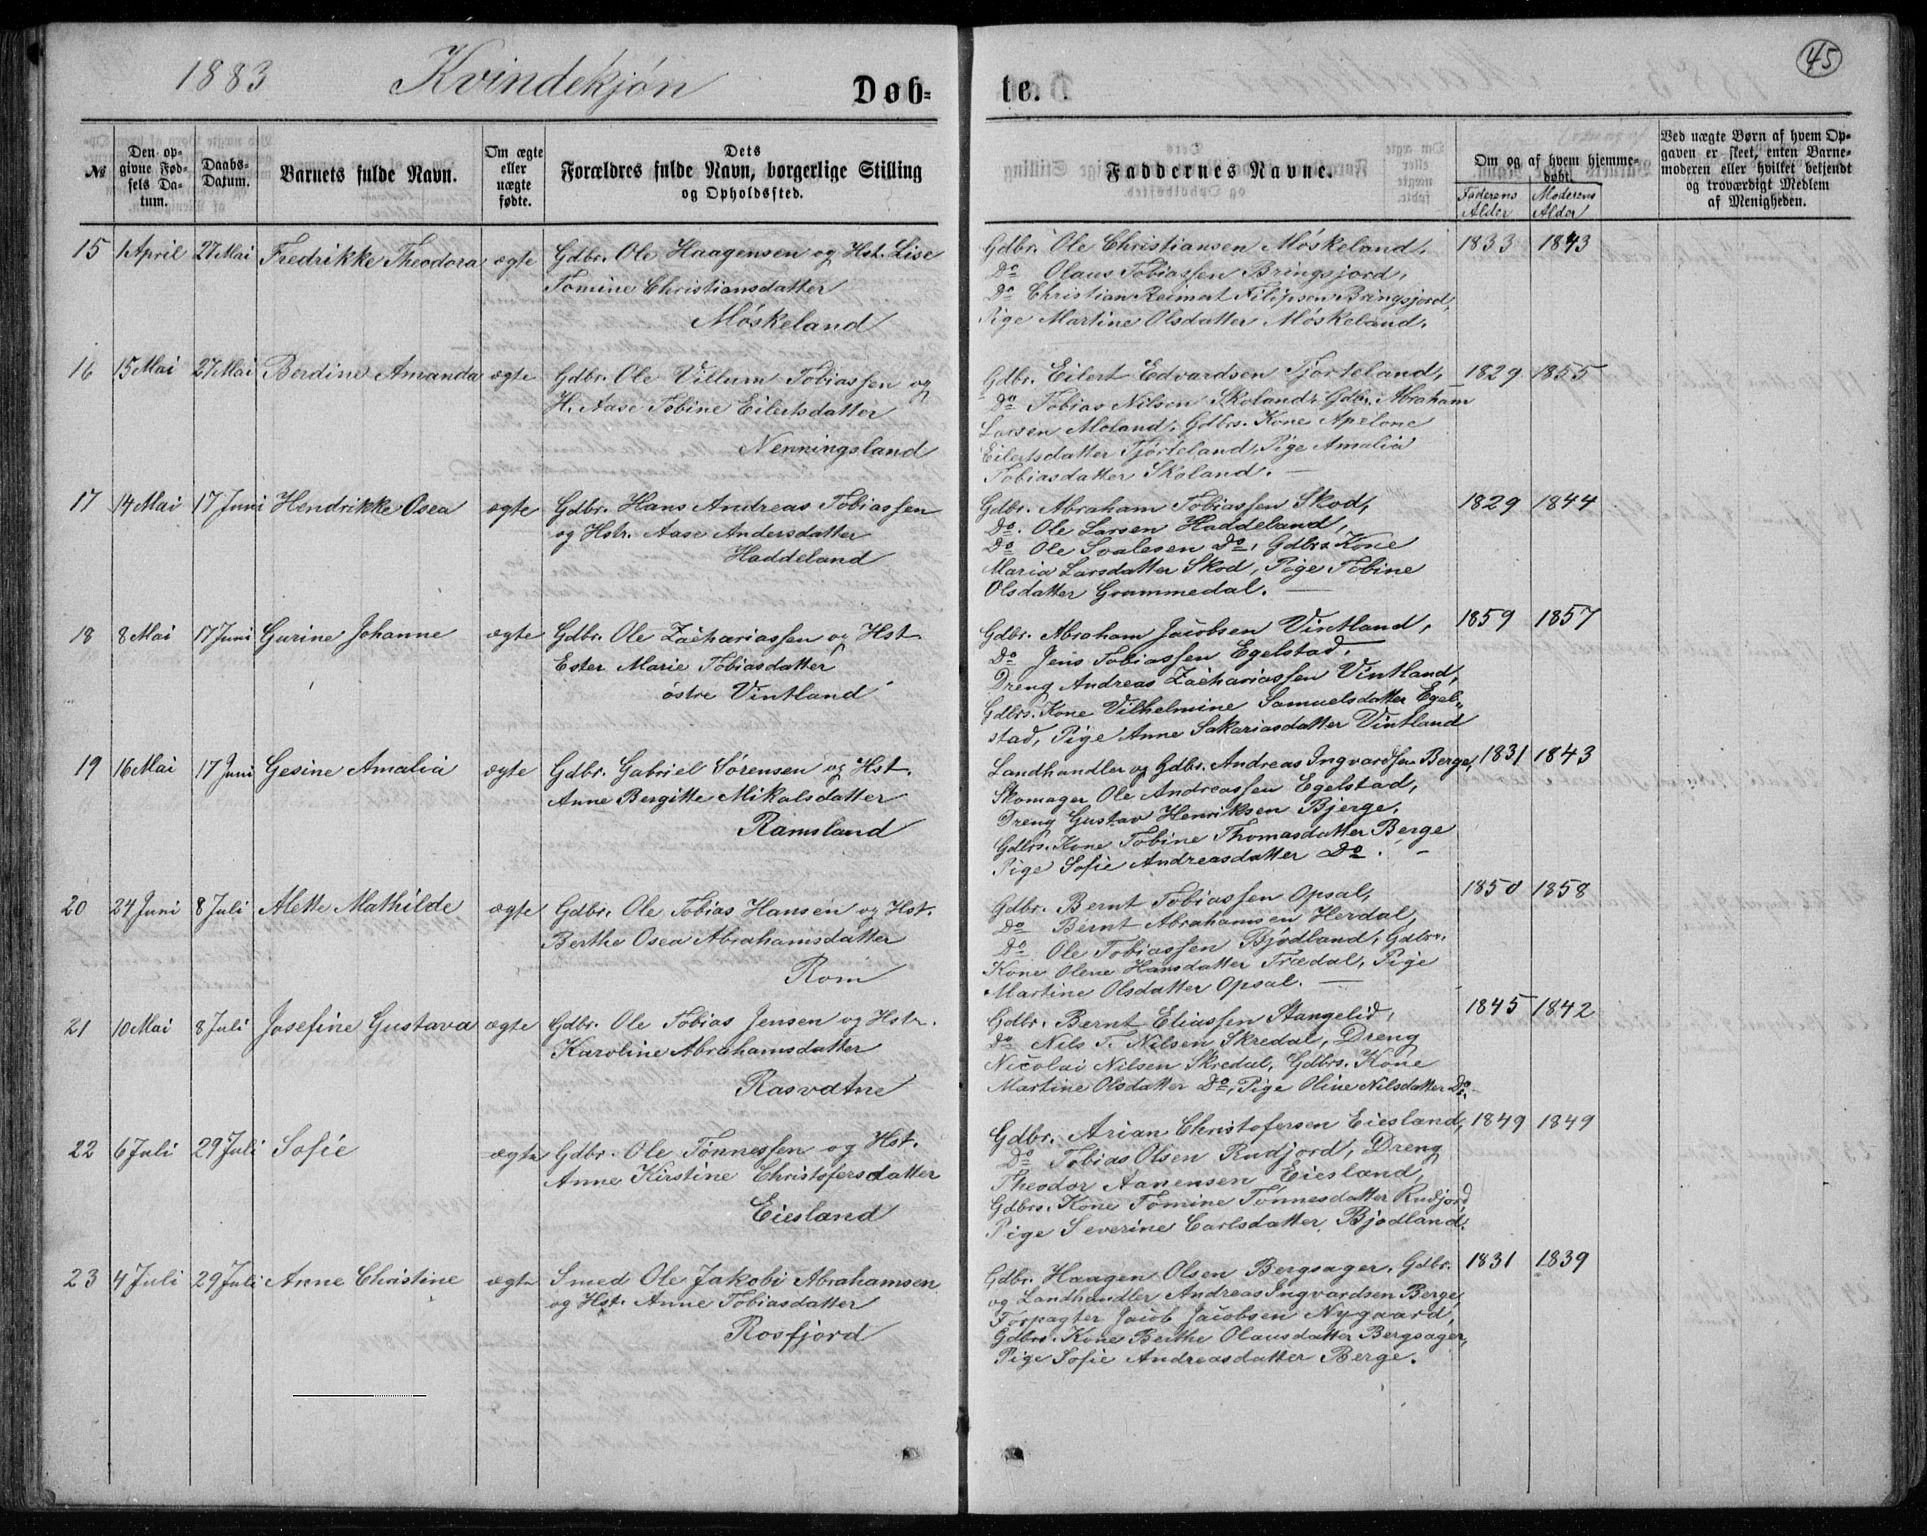 1883 Kvindekjøn Døb=
№
Den op-
givne Fød-
sels Da-
tum.
Daabs-
Datum.
Barnets fulde Navn.
Om ægte
eller
uægte
fødte.
Dets
Forældres fulde Navn, borgerlige Stilling
og Opholdssted.
15 1 April 27 Mai Fredrikke Theodora ægte Gdbr. Ole Haagensen og Hst. Lise
Tomine Christiansdatter
Møskeland
16 15 Mai 27 Mai Berdine Amanda ægte Gdbr. Ole Villum Tobiassen og
H. Aase Tobine Eilertsdatter
Nenningsland
17 14 Mai 17 Juni Hendrikke Osea ægte Gdbr. Hans Andreas Tobiassen
og Hstr. Aase Andersdatter
Haddeland
18 8 Mai 17 Juni Gurine Johanne ægte Gdbr. Ole Zachariassen og Hst.
Ester Marie Tobiasdatter
østre Vintland
19 16 Mai 17 Juni Gesine Amalia ægte Gdbr. Gabriel Sørensen og Hst.
Anne Bergitte Mikalsdatter
Ramsland
20 24 Juni 8 Juli Alette Mathilde ægte Gdbr. Ole Tobias Hansen og Hst.
Berthe Osea Abrahamsdatter
Rom
21 10 Mai 8 Juli Josefine Gustava ægte Gdbr. Ole Tobias Jensen og Hstr.
Karoline Abrahamsdatter
Rasvatne
22 6 Juli 29 Juli Sofie ægte Gdbr. Ole Tønnessen og Hst.
Anne Kirstine Christofersdatter
Eiesland
23 4 Juli 29 Juli Anne Christine ægte Smed Ole Jakobi Abrahamsen
og Hst. Anne Tobiasdatter
Rosfjord
te.
45
Faddernes Navne.
Om og af hvem hjemme-
døbt.
Faderens
Alder
Moderens
Alder
Ved uægte Børn af hvem Op-
gaven er skeet, enten Barne-
moderen eller hvilket bekjendt
og troværdigt Medlem
af Menigheden.
Gdbr. Ole Christiansen Møskeland, 1833 1843
Do Olaus Tobiassen Bringsjord,
Do Christian Reimert Filipsen Bringsjord,
Pige Martine Olsdatter Møskeland.
Gdbr. Eilert Edvardsen Tjørteland, 1829 1855
Do Tobias Nilsen Skoland, Gdbr. Abraham
Larsen Moland, Gdbrs. Kone Apelone
Eilertsdatter Tjørteland, Pige Amalia
Tobiasdatter Skoland. —
Gdbr. Abraham Tobiassen Skod, 1829 1844
Do. Ole Larsen Haddeland,
Do Ole Svalesen Do, Gdbrs Kone
Maria Larsdatter Skod, Pige Tobine
Olsdatter Grummedal. —
Gdbr. Abraham Jacobsen Vintland, 1859 1857
Do Jens Tobiassen Egelstad.
Dreng Andreas Zachariassen Vintland,
Gdbrs. Kone Vilhelmine Samuelsdatter Egel-
stad, Pige Anne Sakariasdatter Vintland
Landhandler og Gdbr. Andreas Ingvardsen Berge, 1831 1843
Skomager Ole Andreassen Egelstad,
Dreng Gustav Henriksen Bjerge,
Gdbrs. Kone Tobine Thomasdatter Berge
Pige Sofie Andreasdatter Do. —
Gdbr. Bernt Tobiassen Opsal, 1850 1858
Do Bernt Abrahamsen Herdal,
Do Ole Tobiassen Bjodland, Gdbr.
Kone Olene Hansdatter Trædal, Pige
Martine Olsdatter Opsal. —
Gdbr. Bernt Eliassen Stangelid, 1845 1842
Do Nils T. Nilsen Skredal, Dreng
Nicolai Nilsen Skredal, Gdbrs. Kone
Martine Olsdatter Do, Pige Oline Nilsdatter Do.
Gdbr. Arian Christofersen Eiesland, 1849 1849
Do Tobias Olsen Rudjord, Dreng
Theodor Aanensen Eiesland,
Gdbrs. Kone Tomine Tønnesdatter Rudjord
Pige Severine Carlsdatter Bjodland.
Gdbr. Haagen Olsen Bergsager, Gdbr. 1831 1839
og Landhandler Andreas Ingvardsen Berge,
Forpagter Jacob Jacobsen Nygaard,
Gdbrs. Kone Berthe Olausdatter Bergsager,
Pige Sofie Andreasdatter Berge.